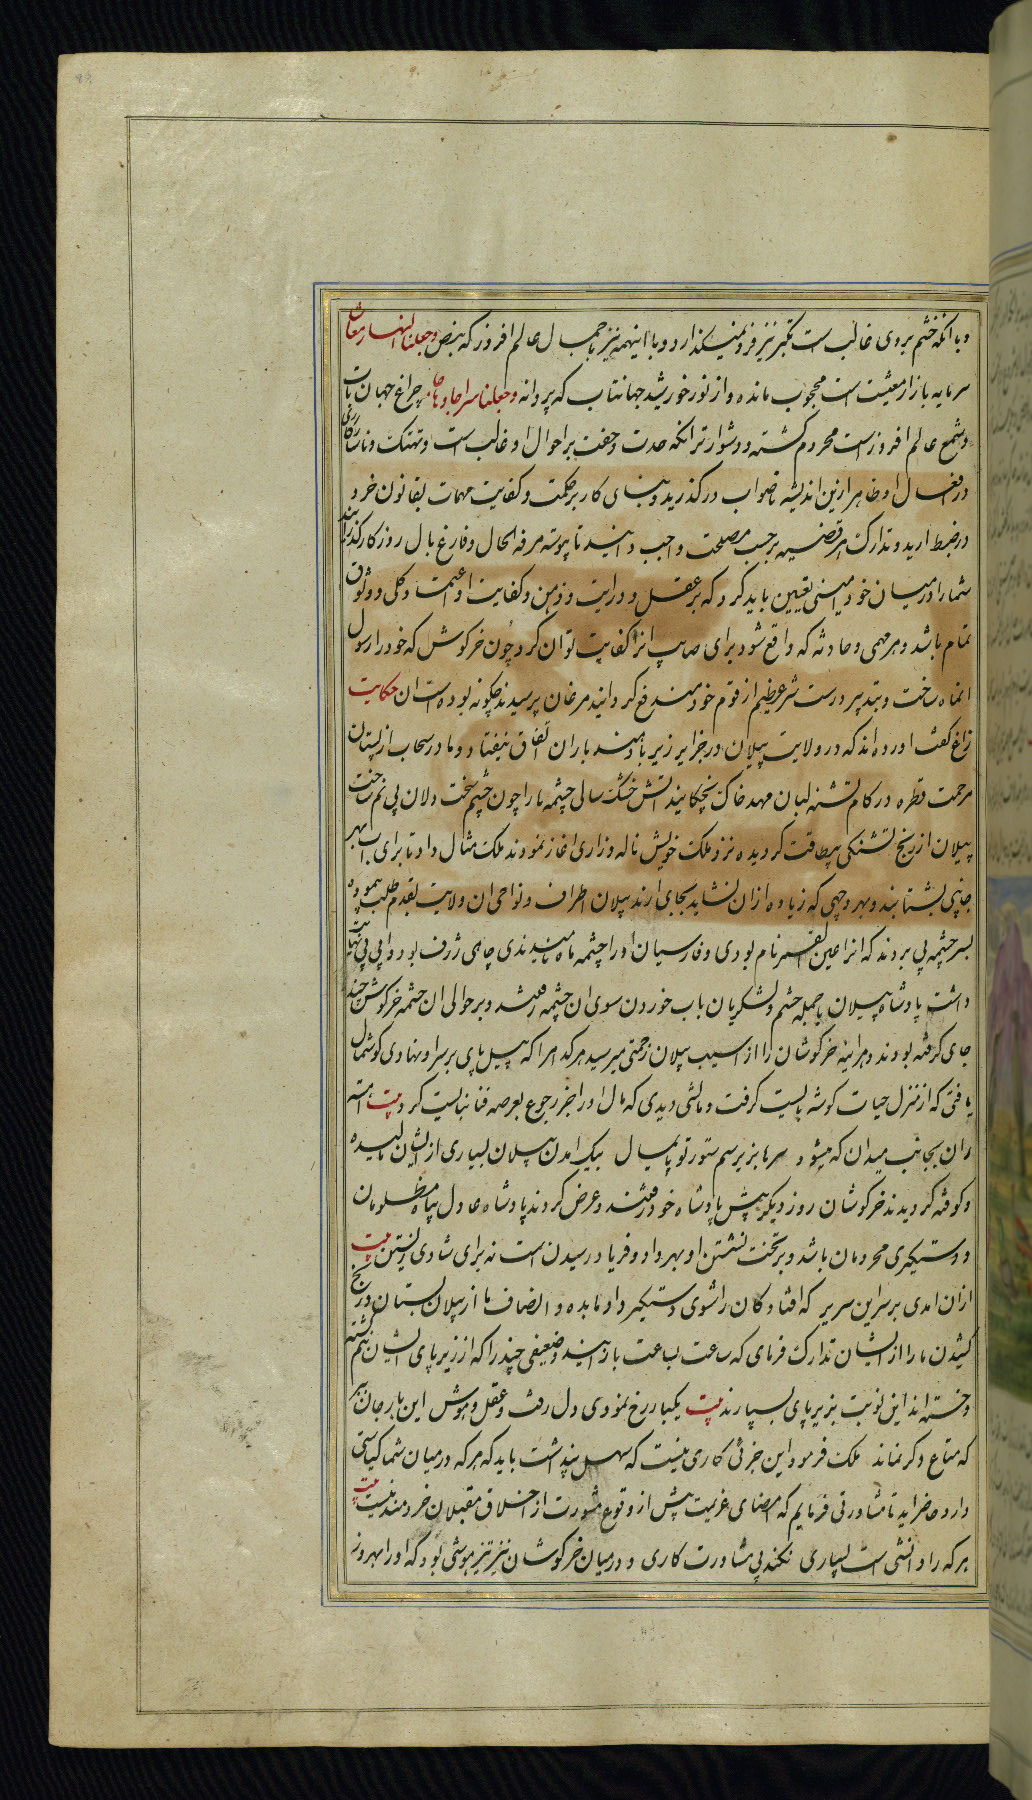 و با آنکه خشم بر وی غالب است تکبر نیز فرو نمیگذارد و با اینهمه نیز با جمال عالم افروز که بنص و جعلنا النهار معاشا
سرمایه بازار معیشت است محجوب مانده و از نور خورشید جهانتاب که پروانه و جعلنا سراجا وهاجا چراغ جهان تاب
و شمع عالم افروزست محروم گشته و دشوارتر آنکه حدت و خفت بر احوال او غالب است و تهتک و ناسازکاری
در افعال او ظاهر ازین اندیشه ناصواب درگذرید و بنای کار بر حکمت و کفایت مهمات بقانون خرد
در ضبط ارید و تدارک هر قضیه بر حسب مصلحت واجب دانید تا پیوسته مرفه الحال و فارغ بال روزگار گذرانید
شما را در میان خود امینی تعیین باید کرد که بر عقل و درایت و ذهن و کفایت او اعتماد کلی و وثوق
تمام باشد و هر مهمی و حادثه که واقع شود برای صایب انرا کفایت توان کرد چون خرکوش که خود را رسول
ماه ساخت و بتدبیر درست شر عظیم از قوم خود مندفع گردانید مرغان پرسیدند چگونه بوده است ان حکایت
زاغ گفت اورده اند که در ولایت پیلان در جزایر زیر باد چند باران اتفاق نیفتاد و مادر سحاب از پستان
مرحمت قطره در کام تشنه لبان مهد خاک نچکانید اتش خشک سالی چشمها را چون چشم سخت دلان بی نم ساخت
پیلان از رنج تشنگی بیطاقت گردیده نزد ملک خویش ناله و زاری اغاز نمودند ملک مثال داد تا برای اب بهر
جانبی بشتابند و بهر وجهی که زیاده از ان نشاید بجای ارند پیلان اطراف و نواحی ان ولایت بقدم طلب پیموده
بسر چشمه پی بردند که انرا عین القمر نام بودی و فارسیان او را چشمه ماه نامیدندی چاهی ژرف بود و ابی بی نهایت
داشت پادشاه پیلان با جمله حشم و لشکریان باب خوردن سوی ان چشمه رفتند و بر حوالی ان چشمه خرکوش چند
جای گرفته بودند و هراینه خرکوشان را از اسیب پیلان زحمتی میرسید هر کدام را که پیل پای بر سر او نهادی گوشمال
یافتی که از منزل حیات گوشه بایست گرفت و مالشی دیدی که مال او را جز رجوع بعرصه فنا نبایست کرد بیت اهسته
ران بجانب میدان که میشود سرها بزیر سم ستور تو پایمال بیک امدن پیلان بسیاری از ایشان مالیده
و کوفته گردیدند خرکوشان روز دیگر پیش پادشاه خود رفتند و عرض کردند پادشاه عادل پناه مظلومان
و دستگیری محرومان باشد و بر تخت نشستن او بهر داد و فریاد رسیدن است نه برای شادی زیستن بیت
از ان امدی بر سر این سریر که افتادگان را شوی دستگیر داد ما بده و انصاف ما از پیلان بستان و رنج
کشیدن ما را از ایشان تدارک فرمای که ساعت بساعت بازایند و ضعیفی چند را که از زیر پای ایشان نیم کشته
و خسته اند این نوبت بزیر پای بسپارند بیت یکبار رخ نمودی دل رفت و عقل و هوش این بار جان ببر
که متاع دگر نماند ملک فرمود این جزئی کاری نیست که سهل پنداشت باید که هر که در میان شما کیاستی
دارد حاضر اید تا مشاورتی فرمایم که امضای عزیمت پیش از وقوع مشورت از اخلاق مقبلان خردمند نیست بیت
هر که را دانشی است بسیاری نکند بی مشاورت کاری و در میان خرکوشان نیز تیزهوشی بود که او را بهروز